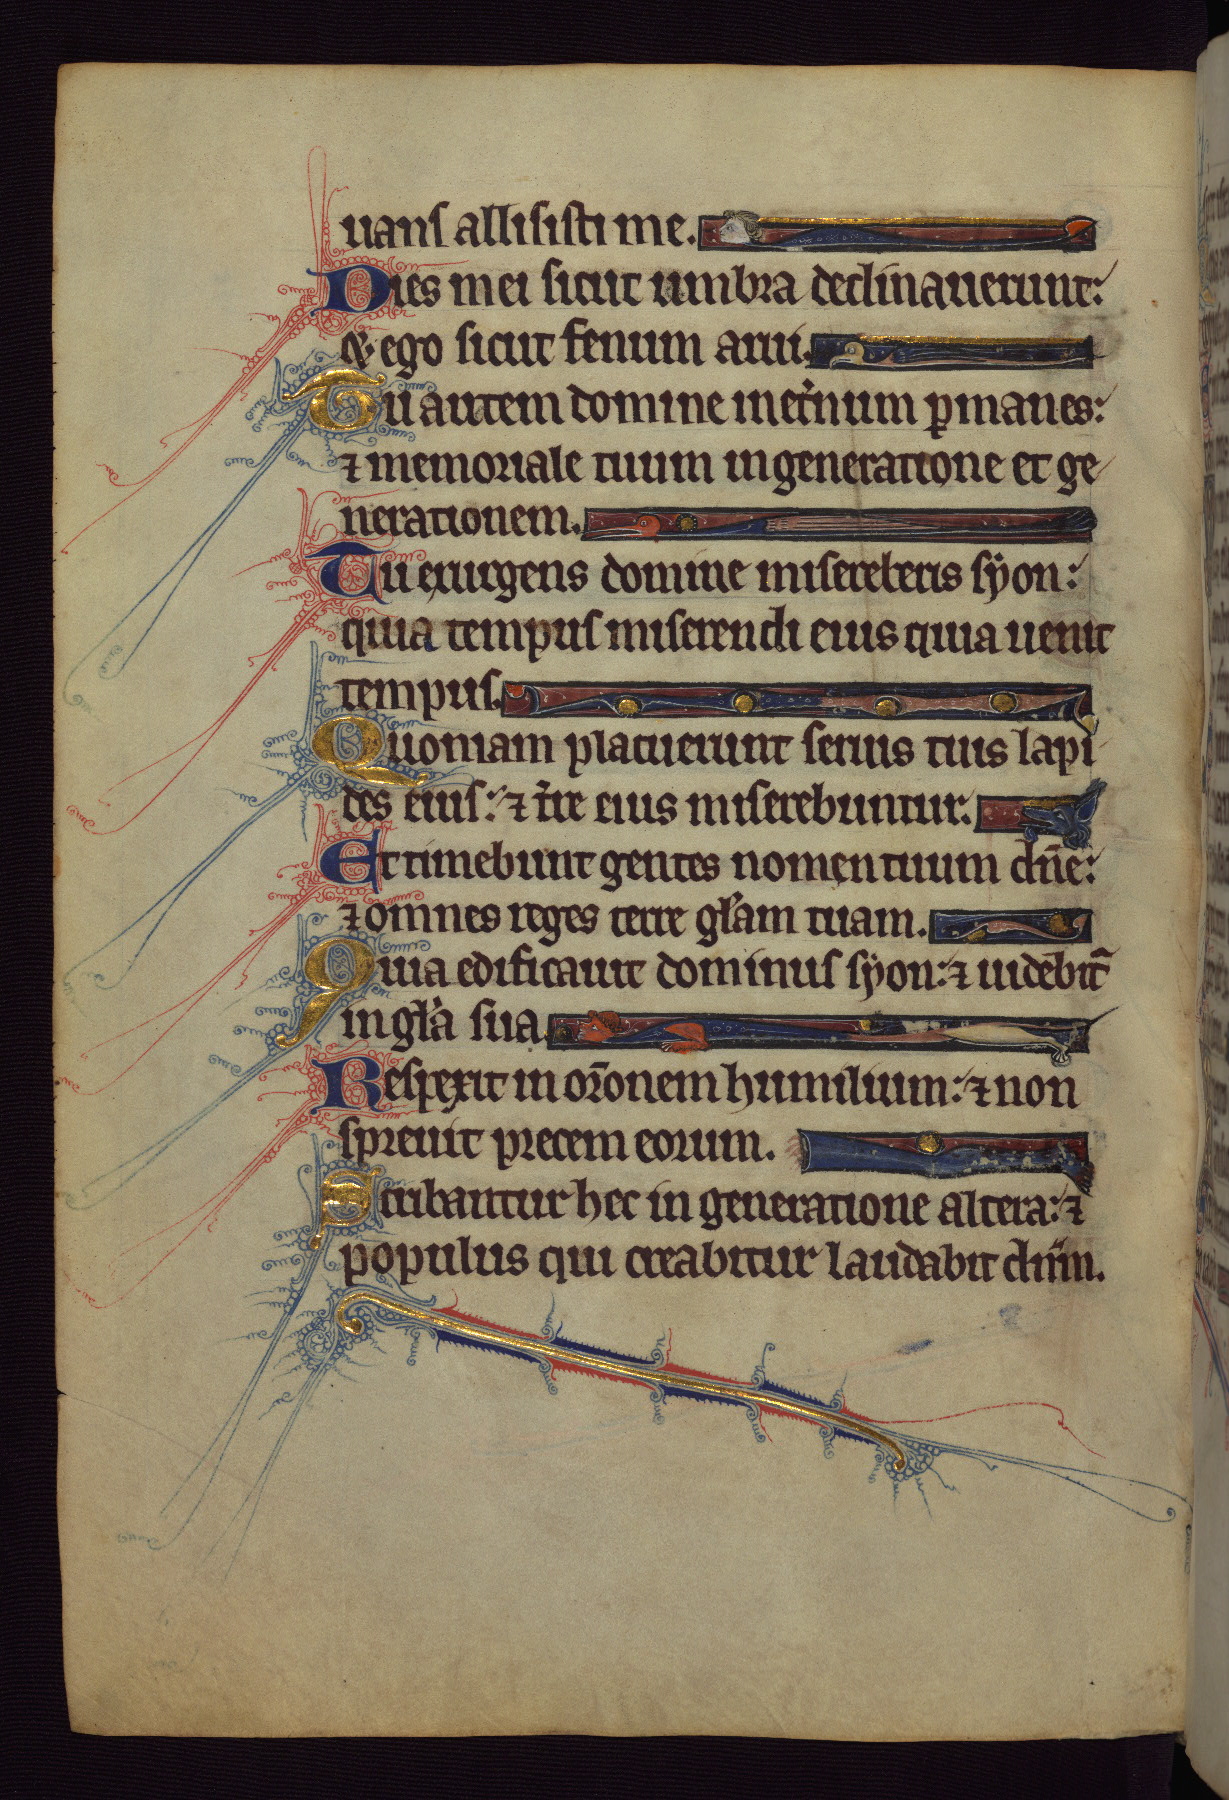 uans allisisti me.
Dies mei sicut umbra declinauerunt:
& ego sicut fenum arui.
Tu autem domine inet̉num ꝑmanes:
⁊ memoriale tuum in generatione et ge
nerationem.
Tu exurgens domine misereberis syon:
quia tempus miserendi eius quia uenit
tempus.
Quoniam placuerunt seruis tuis lapi
des eius: ⁊ t̉re eius miserebuntur.
Et timebunt gentes nomen tuum dn̄e:
⁊ omnes reges terre gl̃am tuam.
Quia edificauit dominus syon: ⁊ uidebit̃
in gl̃a sua.
Respexit in or̄onem humilium: ⁊ non
spreuit precem eorum.
Scribantur hec in generatione altera: ⁊
populus qui creabitur laudabit dn̄m.